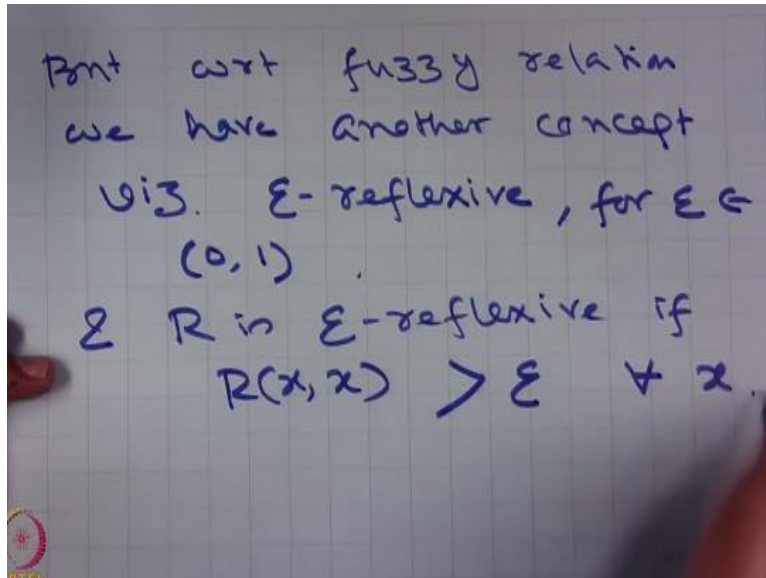 But wrt fuzzy relation
we have another concept
viz. ε-reflexive, for ε ∈
(0, 1).
& R is ε-reflexive if
R(x, x) > ε ∀ x.